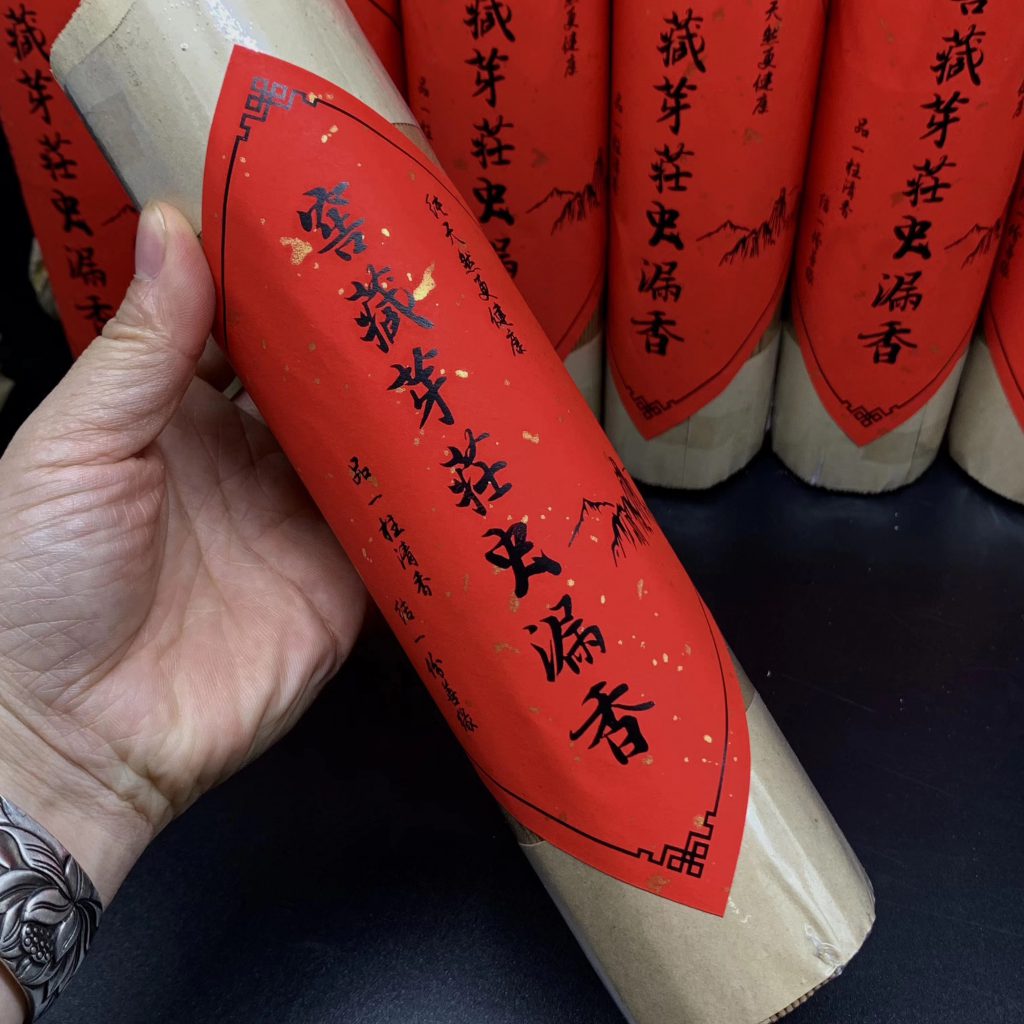 纯天然更健康
窖藏芽莊虫漏香
品一柱清香 结一份善缘
藏芽莊虫漏香
更健康
藏芽莊虫漏
品一
然更健康
藏芽莊虫漏香
藏芽莊虫漏香
品一柱清香